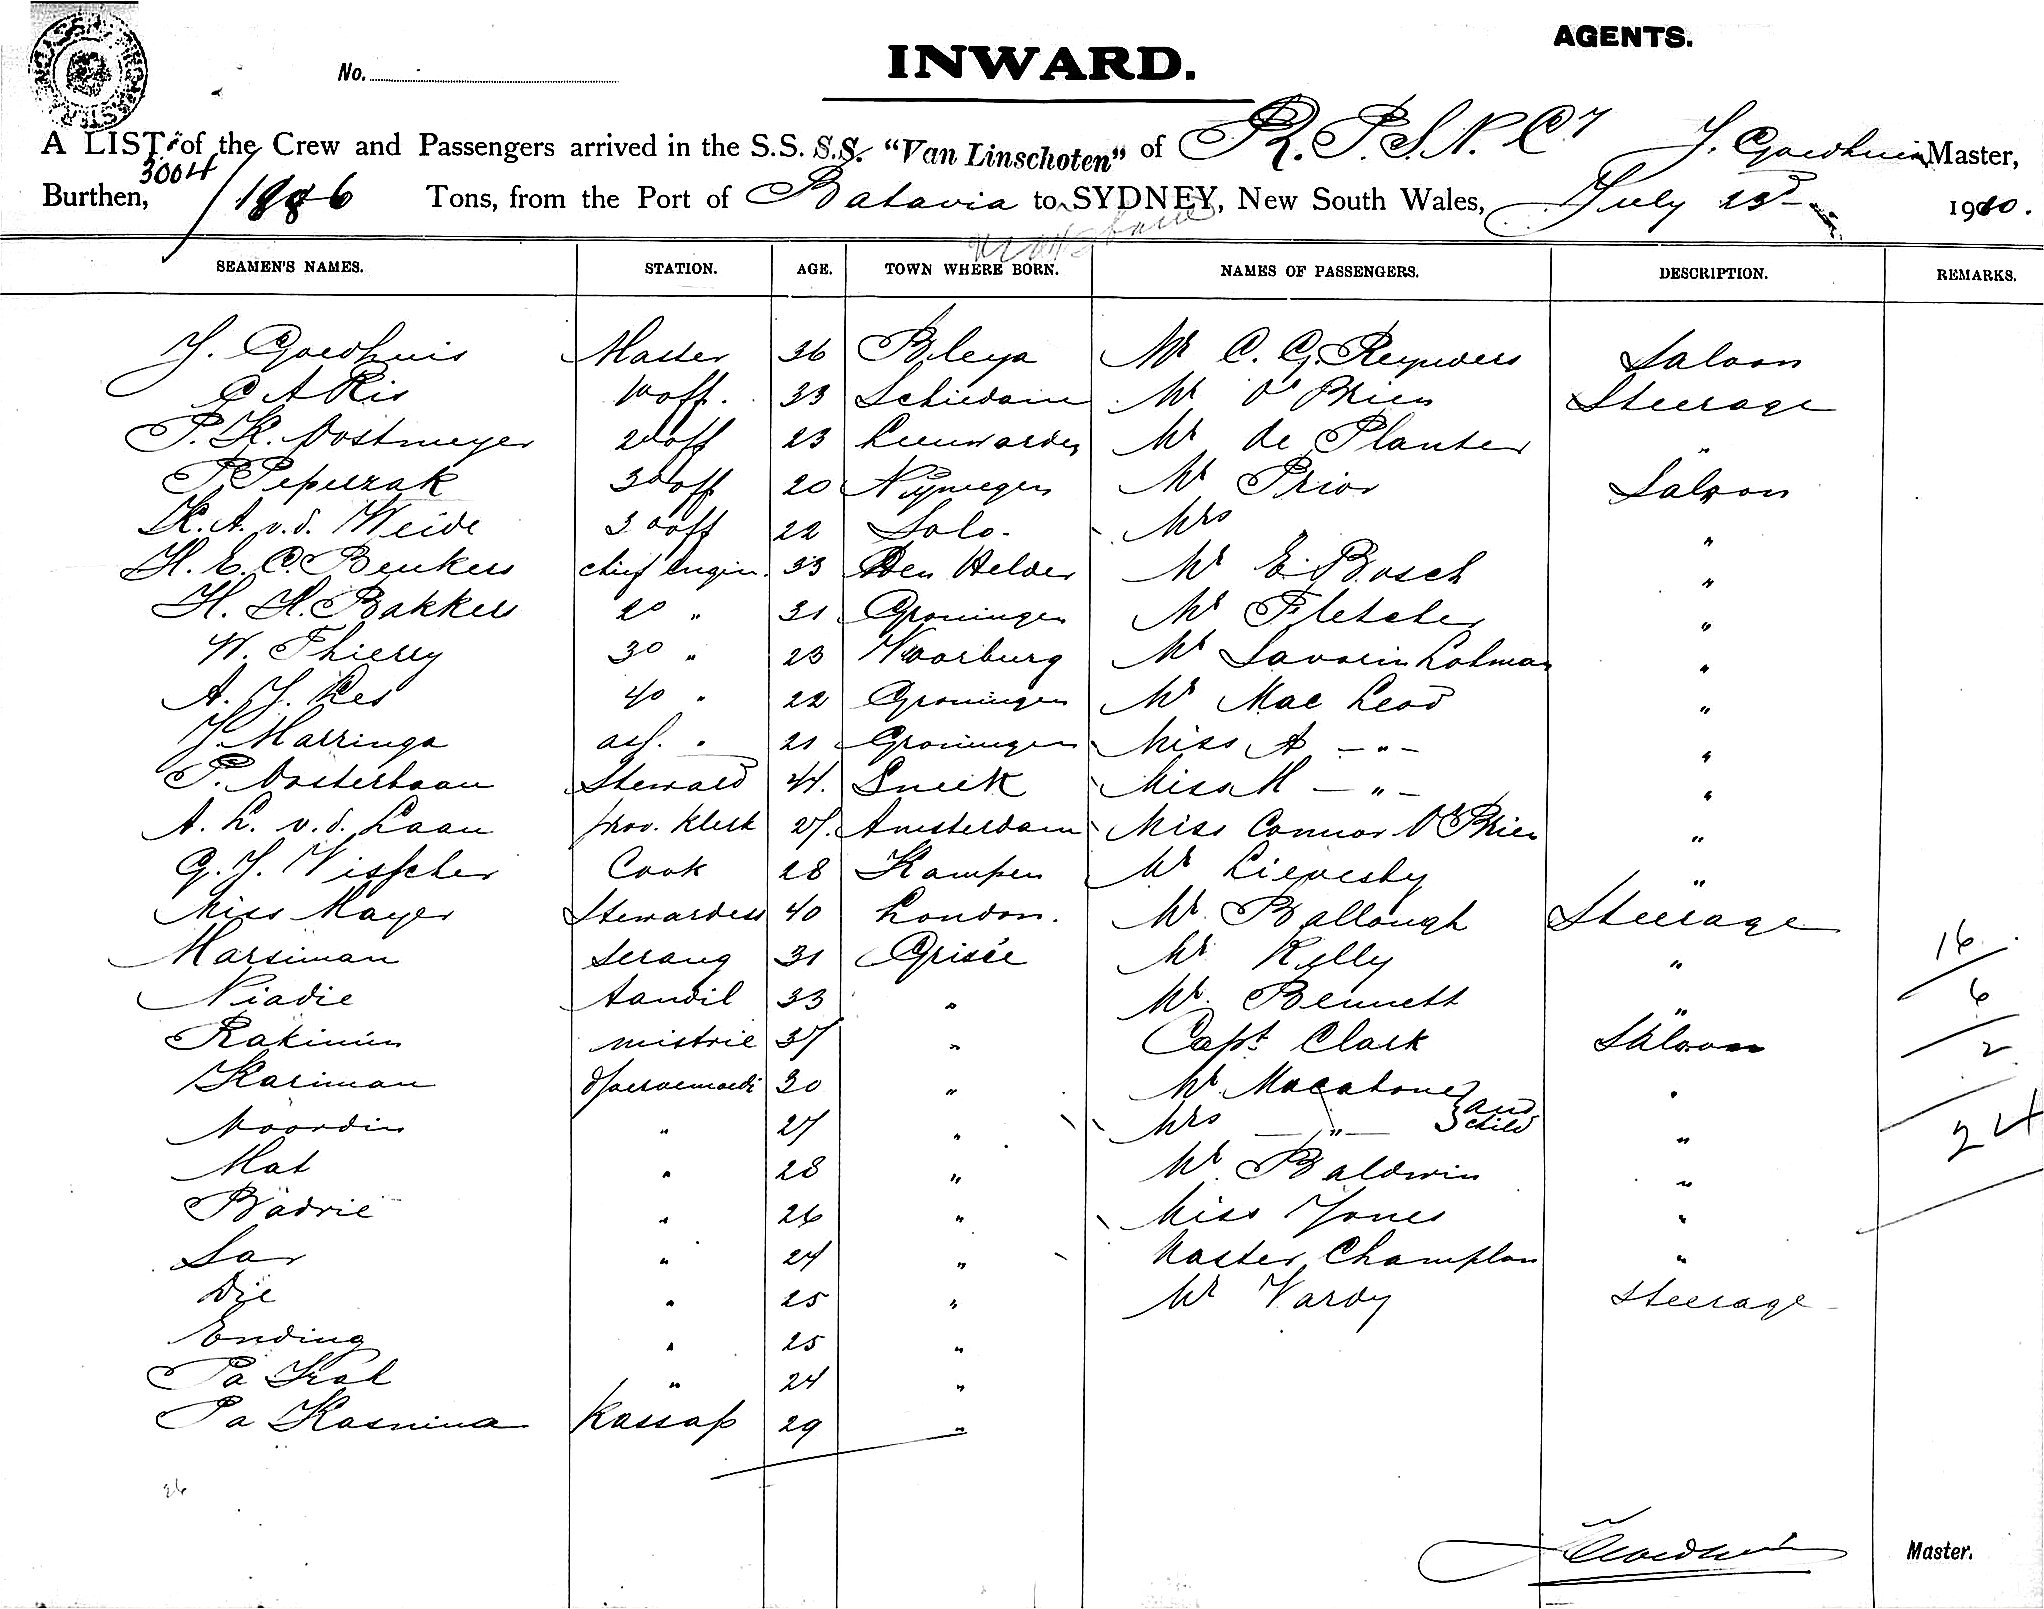 AGENTS.
No.
INWARD.
A LIST of the Crew and Passengers arrived in the S.S. S.S. "Van Linschoten" of R. P. S. N. Cy J. Goedhuis Master,
Burthen, 3004/1886 Tons, from the Port of Batavia to SYDNEY, New South Wales, July 1910.
SEAMEN'S NAMES. STATION. AGE. TOWN WHERE BORN. NAMES OF PASSENGERS. DESCRIPTION. REMARKS.
J. Goedhuis Master 36 Mr C. G. Saloon
C A Ris 1o off. 33 Schiedam Mr O'Brien Steerage
P. K. Oostmeyer 2o off 23 Leeuwarden Mr de Planter "
P 3o off 20 Nymegen Mr Prior Saloon
K. A. v. d. Weide 3 o off 22 Solo. Mrs "
H. E. C. Beukers chief engin. 33 Den Helder Mr E. Bosch "
H. H. Bakker 2o " 31 Groningen Mr Fletcher "
W. Thierry 3o " 23 Voorburg Mr Savorin Lohman "
A. J. Res 4o " 22 Groningen Mr Mac Leod "
J. Marringa ass. " 21 Groningen Miss A — " — "
P. Oosterbaan Steward 41. Sneek Miss M — " — "
A. L. v. d. Laan prov. Klerk 27. Amsterdam Miss Connor O'Brien "
G. J. Visscher Cook 28 Kampen Mr "
Miss Mayer Stewardess 40 London. Mr. Ballough Steerage
Marsiman Serang 31 Grisée Mr Kelly " 16
Niadie tandil 33 " Mr. Bennett " 6
Rakimin mistrie 37 " Capt. Clark Saloon 2
Kariman 30 " Mr "
Noordin " 27 " Mrs — " — and child " 24
Mat " 28 " Mr. Baldwin "
Badrie " 26 " Miss Jones "
Sar " 24 " Master Champlon "
Die " 25 " Mr Vardy Steerage
Ending " 25 "
Pa " 24 "
Pa Kasmina Kassap 29 "
26
J Goedhuis Master.